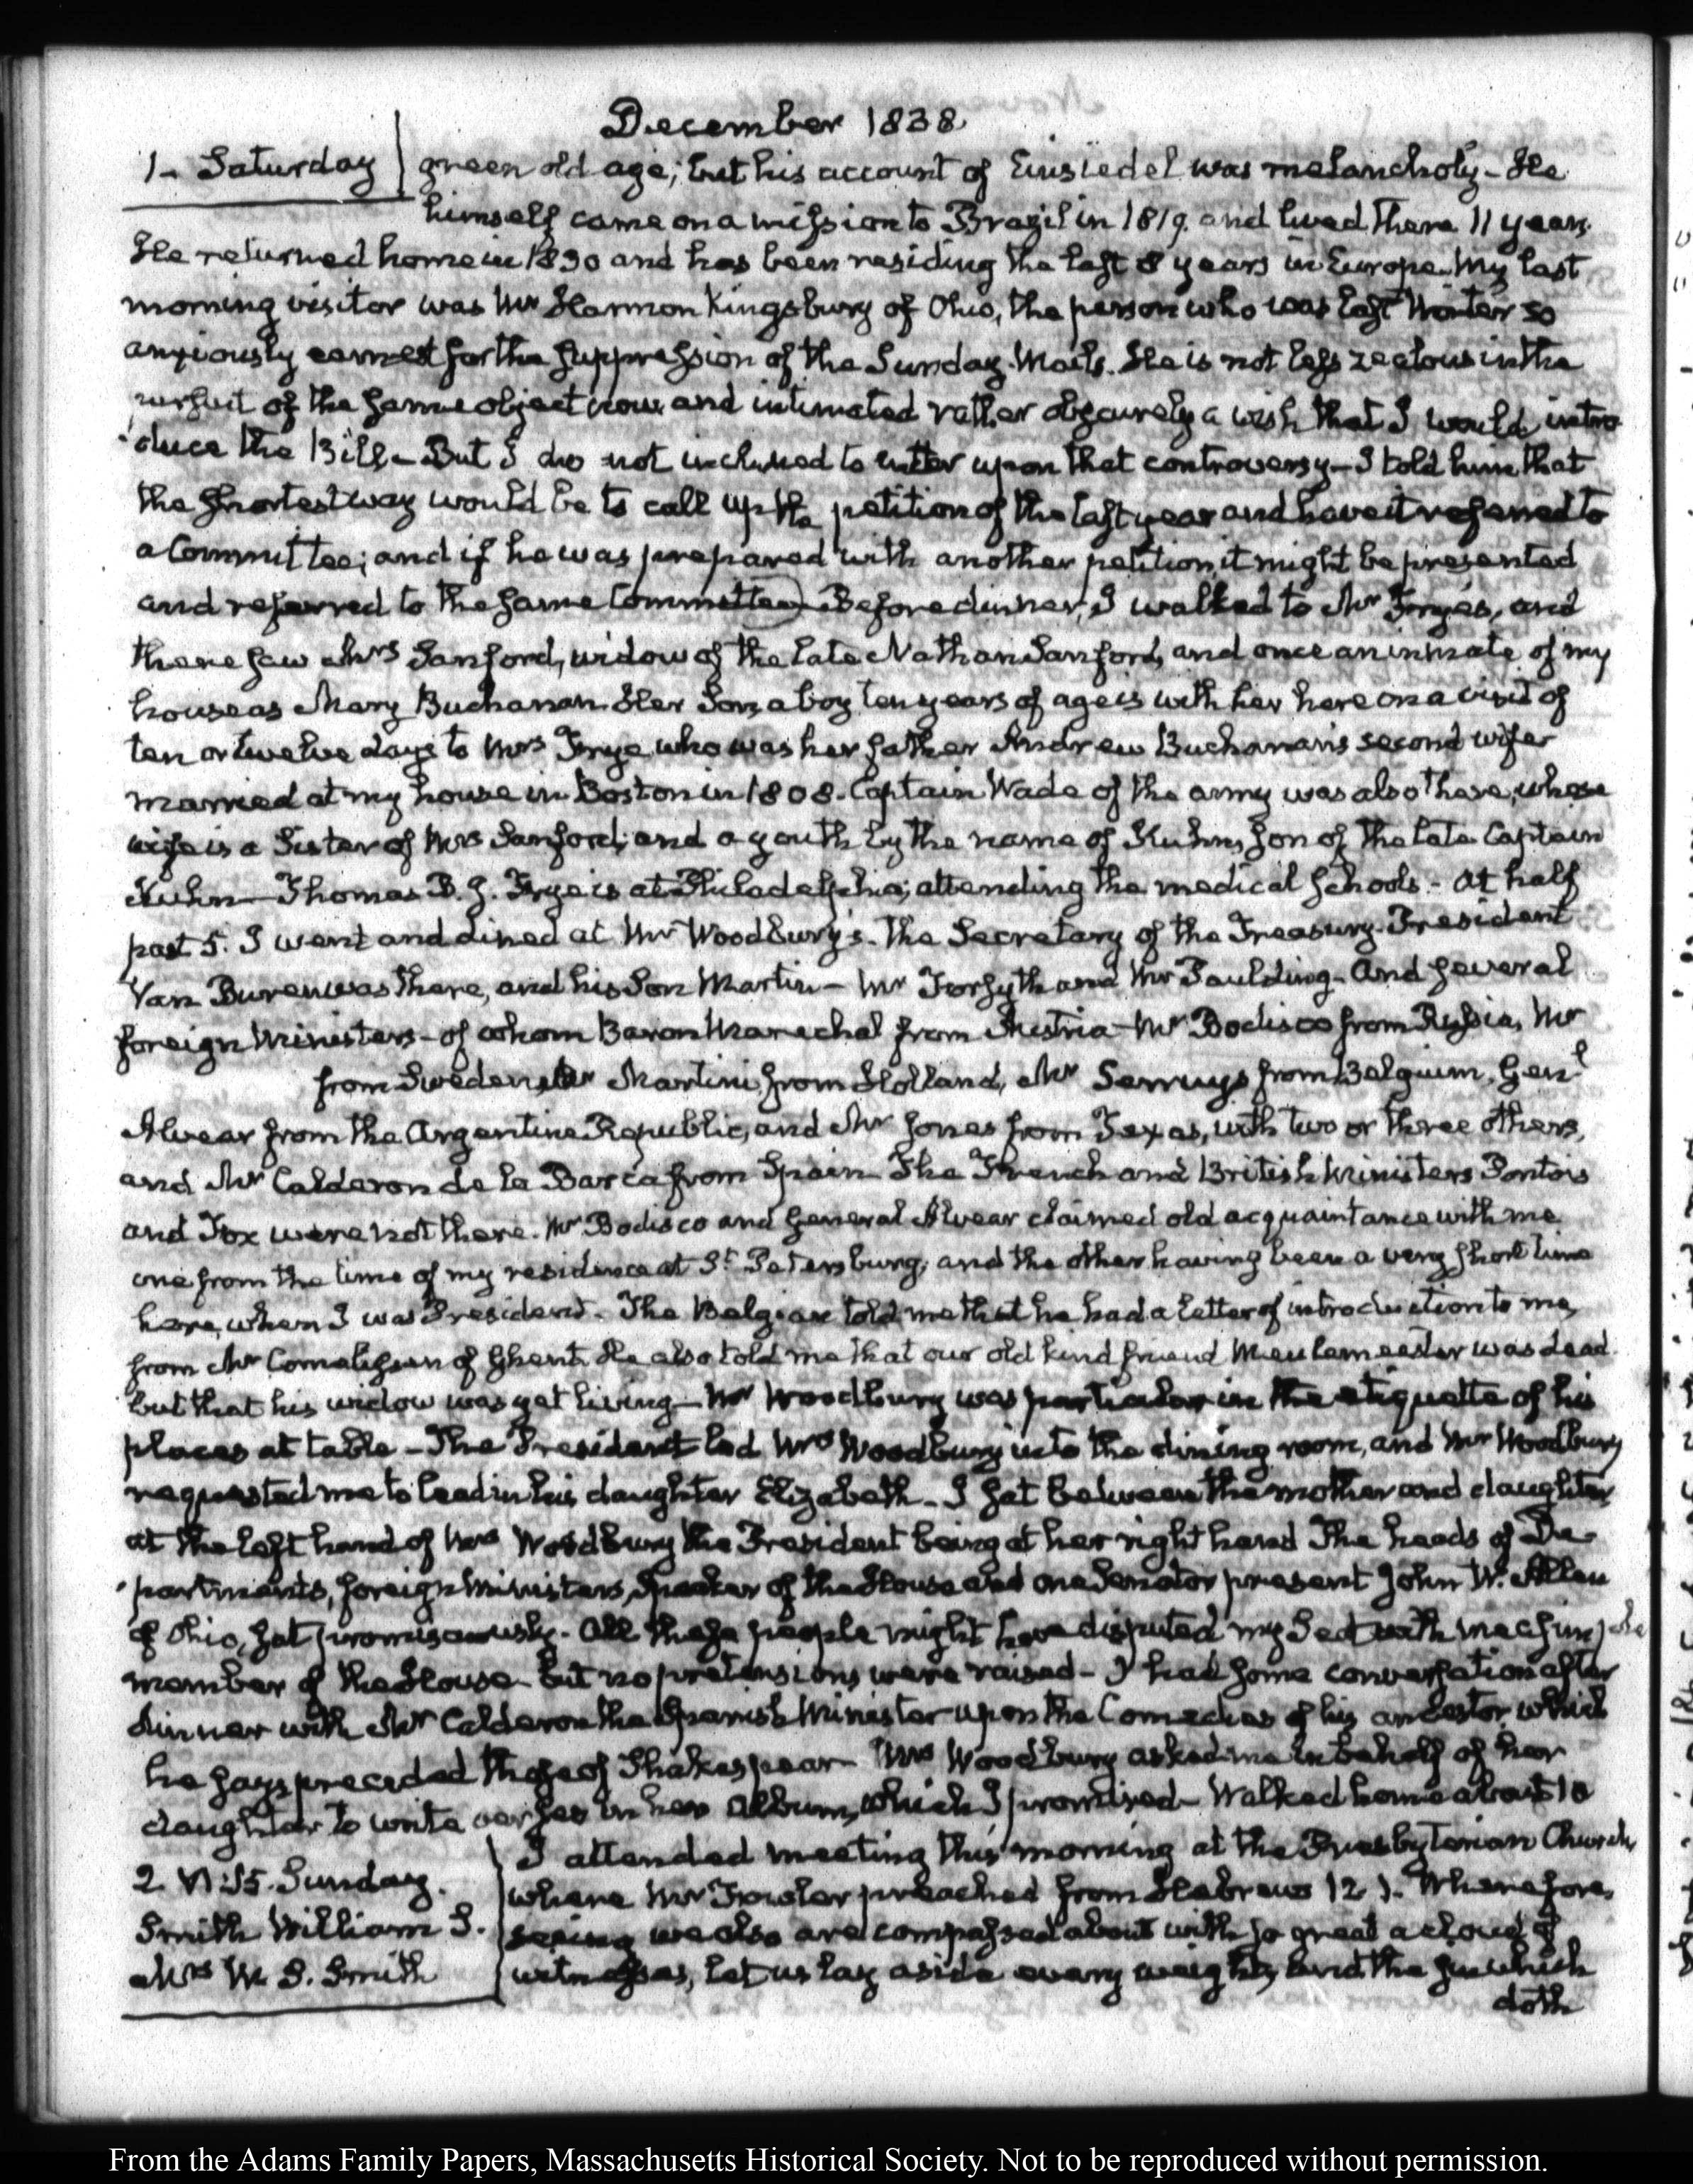 December 1838
1- Saturday
green old age; but his account of Einsiedel was melancholy - He
himself came on a mission to Brazil in 1819. and lived there 11 years.
He returned home in 1830 and has been residing the last 8 years in Europe. My last
morning visitor was Mr Harmon Kingsbury of Ohio, the person who was last Winter so
anxiously earnest for the suppression of the Sunday Mails. He is not less zealous in the
pursuit of the same object now and intimated rather obscurely a wish that I would intro-
duce the Bill - But I do not inclined to enter upon that controversy - I told him that
the shortest way would be to call up the petition of the last year and have it referred to
a Committee; and if he was prepared with another petition it might be presented
and referred to the same Committee - Before dinner, I walked to Mr Frye's, and
there saw Mrs Sanford, widow of the late Nathan Sanford, and once an inmate of my
house as Mary Buchanan. Her Son, a boy ten years of age is with her here on a visit of
ten or twelve days to Mrs Frye who was her father Andrew Buchanan's second wife
married at my house in Boston in 1808. Captain Wade of the army was also there, whose
wife is a Sister of Mrs Sanford; and a youth by the name of Kuhn, son of the late Captain
Kuhn - Thomas B. J. Frye is at Philadelphia; attending the medical schools - At half
past 5. I went and dined at Mr Woodbury's. The Secretary of the Treasury. President
Van Buren was there, and his Son Martin - Mr Forsyth and Mr Paulding - And several
foreign Ministers - of whom Baron Marechal from Austria - Mr Bodisco from Russia, Mr
from Sweden, Mr Martini from Holland, Mr Serruys from Belgium, Genl
Alvear from the Argentine Republic, and Mr Jones from Texas, with two or three others,
and Mr Calderon de la Barca from Spain - The French and British Ministers Pontois
and Fox were not there. Mr Bodisco and General Alvear claimed old acquaintance with me
one from the time of my residence at St Petersburg; and the other having been a very short time
here, when I was President - The Belgian told me that he had a letter of introduction to me,
from Mr Cornelissen of Ghent. He also told me that our old kind friend Meulemeester was dead.
but that his widow was yet living - Mr Woodbury was particular in the etiquette of his
places at table - The President led Mrs Woodbury into the dining room, and Mr Woodbury
requested me to lead in his daughter Elizabeth - I sat between the mother and daughter
at the left hand of Mrs Woodbury the President being at her right hand The heads of De-
partments, foreign Ministers, Speaker of the House and one Senator present John W. Allen
of Ohio, sat promiscuously - All these people might have disputed my seat with me a simple
member of the House - but no pretensions were raised - I had some conversation after
dinner with Mr Calderon the Spanish Minister upon the Comedies of his ancestor, which
he says preceded those of Shakespear - Mrs Woodbury asked me in behalf of her
daughter to write verses in her Album, which I promised - Walked home about 10
2. VI:15. Sunday.
Smith William S.
Mrs W. S. Smith
I attended meeting this morning at the Presbyterian Church,
where Mr Fowler preached from Hebrews 12 1. Wherefore,
seeing we also are compassed about with so great a cloud of
witnesses, let us lay aside every weight, and the sin which
doth
From the Adams Family Papers, Massachusetts Historical Society. Not to be reproduced without permission.